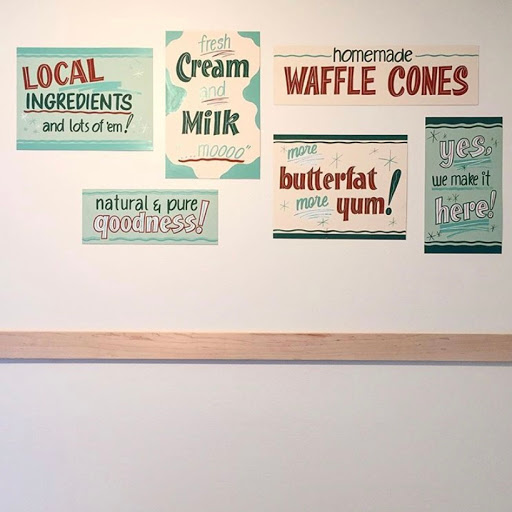 LOCAL
INGREDIENTS
and lots of 'em!
fresh
Cream
and
Milk
...moooo"
homemade
WAFFLE CONES
more
butterfat
more yum!
yes,
we make it
here!
natural & pure
goodness!